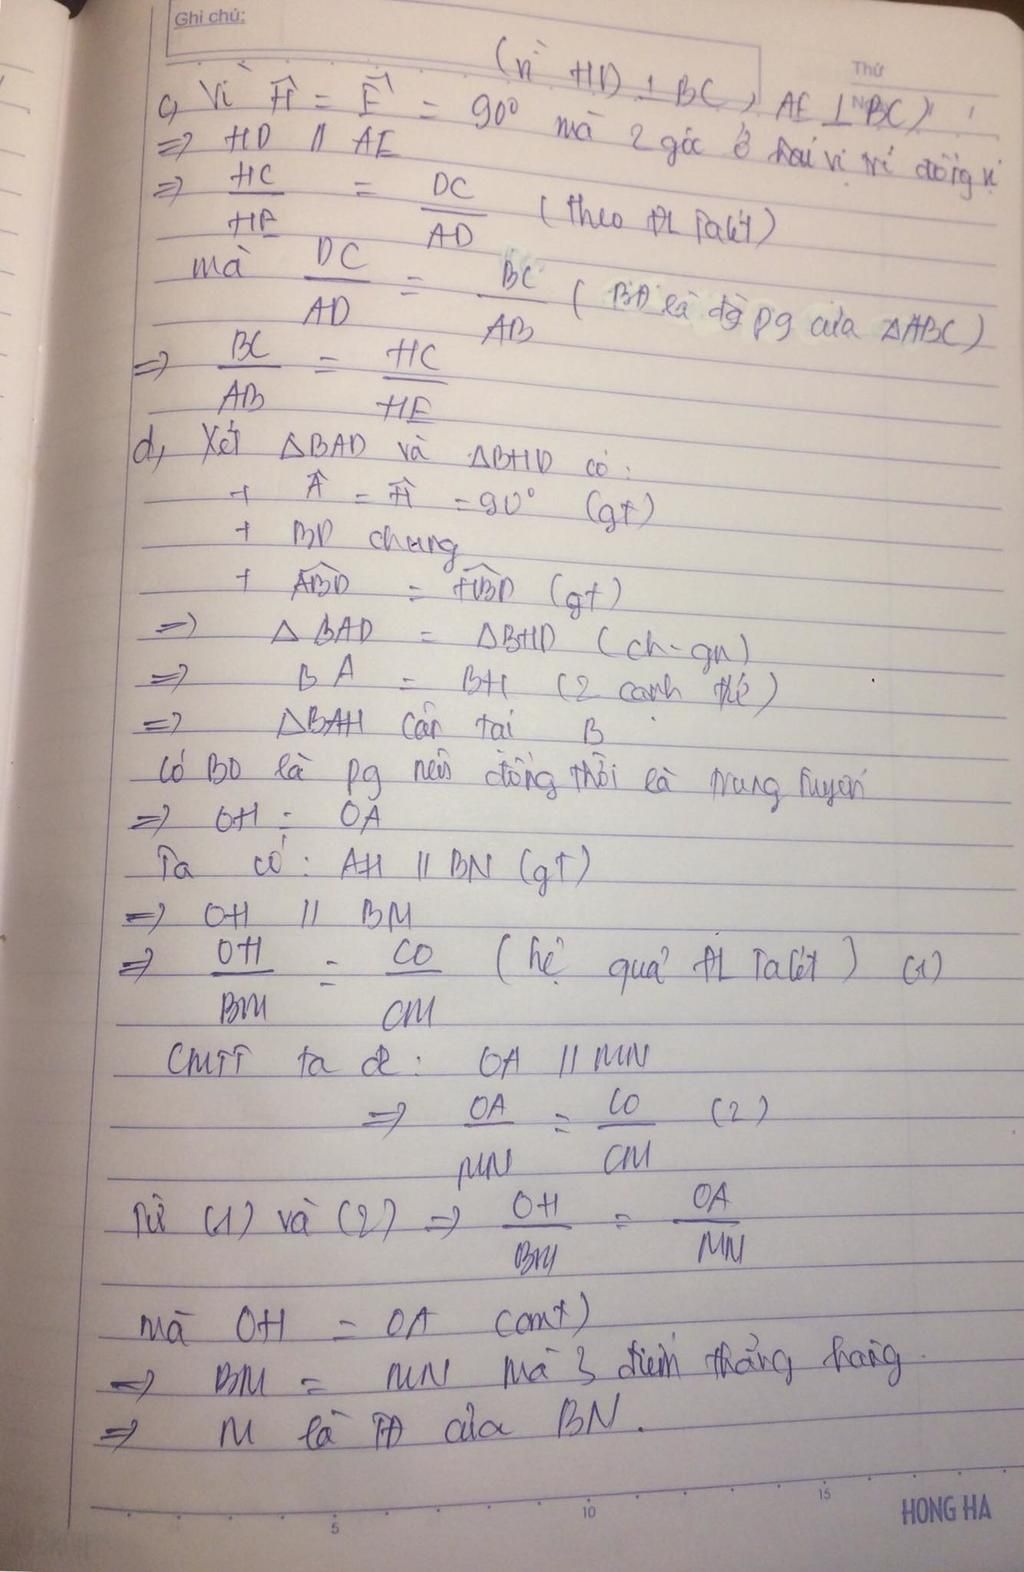 Ghi chú:
Thứ
(vì HD ⊥ BC, AE ⊥ BC)
c, Vì Ĥ = Ê = 90° mà 2 góc ở hai vị trí đồng vị
=> HD // AE
=> HC/HE = DC/AD (theo ĐL Talét)
mà DC/AD = BC/AB (BD là đg pg của ΔABC)
=> BC/AB = HC/HE
d, Xét ΔBAD và ΔBHD có:
+ Â = Ĥ = 90° (gt)
+ BD chung
+ ABD = HBD (gt)
=> ΔBAD = ΔBHD (ch-gn)
=> BA = BH (2 cạnh t/ứ)
=> ΔBAH cân tại B
Có BO là pg nên đồng thời là trung tuyến
=> OH = OA
Ta có: AH // BN (gt)
=> OH // BM
=> OH/BM = CO/CM (hệ quả ĐL Talét) (1)
CMTT ta đc: OA // MN
=> OA/MN = CO/CM (2)
Từ (1) và (2) => OH/BM = OA/MN
mà OH = OA (cmt)
=> BM = MN mà 3 điểm thẳng hàng
=> M là TĐ của BN.
5 10 15
HONG HA